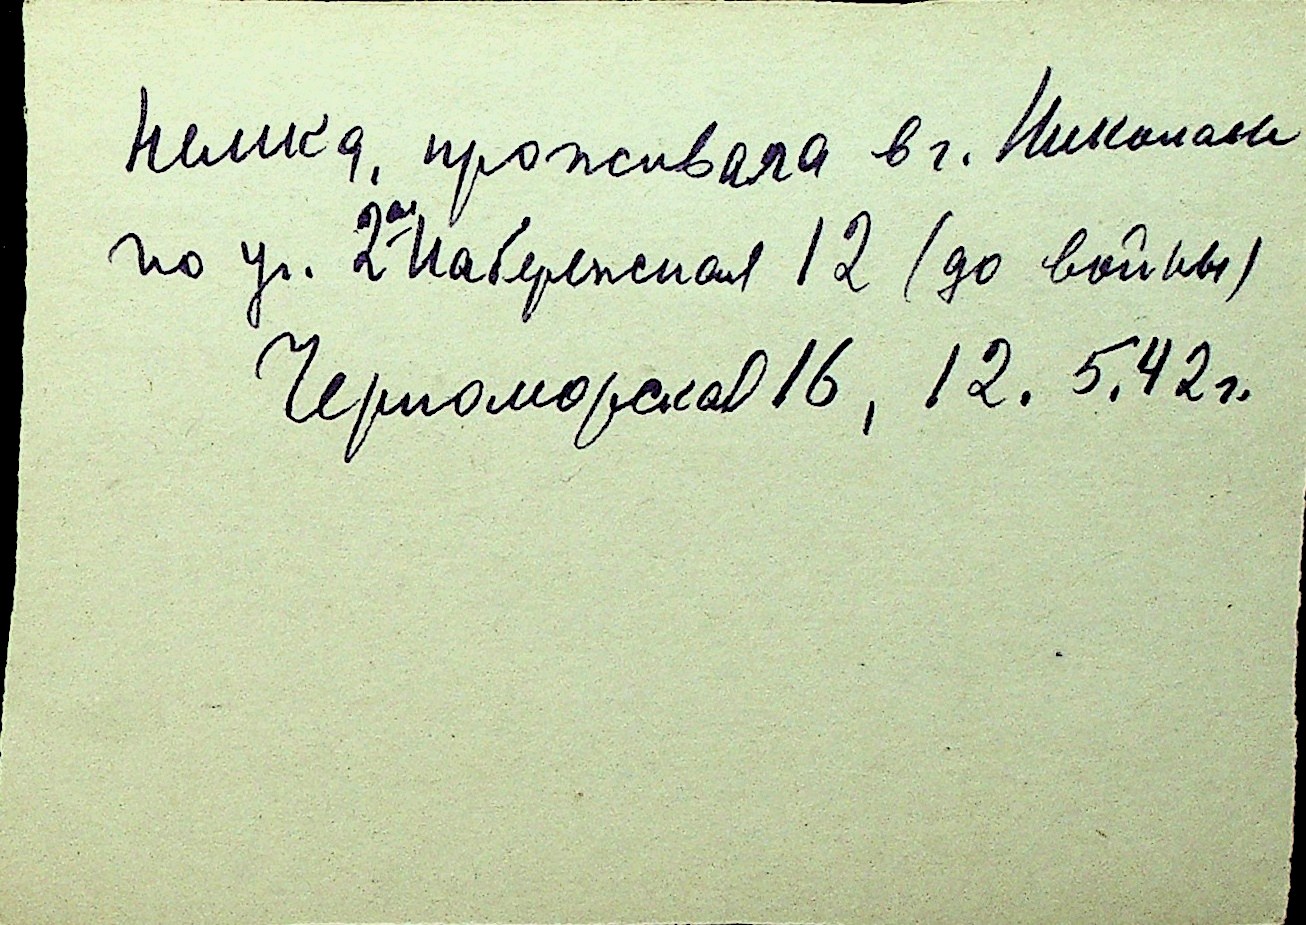 немка, проживала в г. Николаев
по ул. 2ая Набережная 12 (до войны)
Черноморская 16, 12. 5.42г.